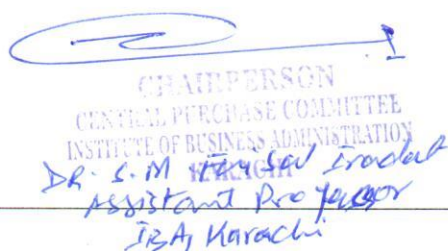 CHAIRPERSON
CENTRAL PURCHASE COMMITTEE
INSTITUTE OF BUSINESS ADMINISTRATION
KARACHI
DR. S.M Faisal Iradat
Assistant Professor
IBA, Karachi